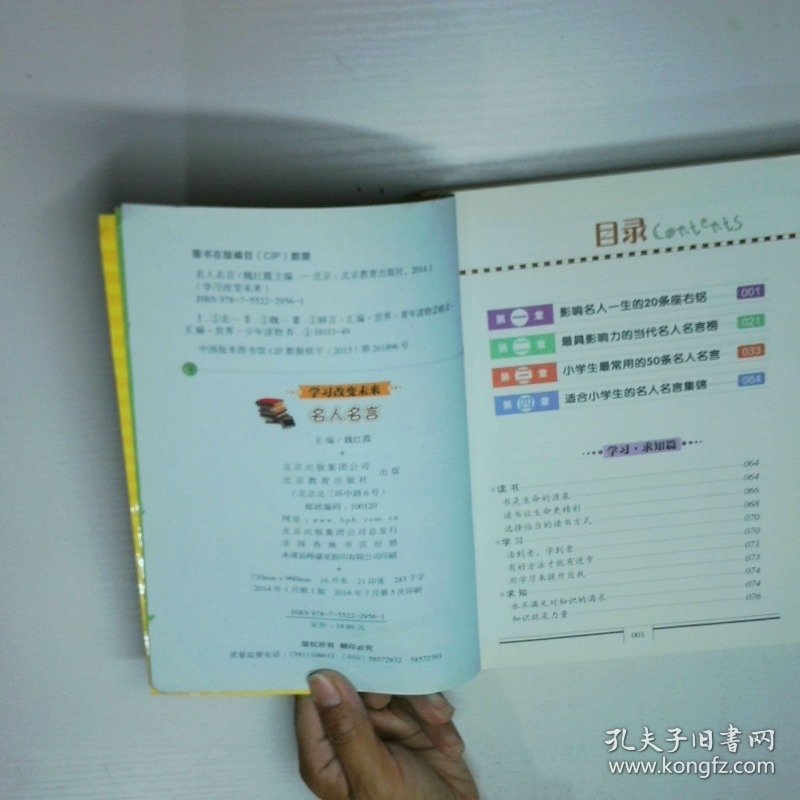 图书在版编目（CIP）数据
名人名言/魏红霞主编. —北京：北京教育出版社，2014.1
（学习改变未来）
ISBN 978-7-5522-2956-1
Ⅰ. ①名… Ⅱ. ①魏… Ⅲ. ①格言-汇编-世界-青年读物②格言-
汇编-世界-少年读物 Ⅳ. ①H033-49
中国版本图书馆CIP数据核字（2013）第261896号
学习改变未来
名人名言
主编/魏红霞
北京出版集团公司
北京教育出版社
出版
（北京北三环中路6号）
邮政编码：100120
网址：www.bph.com.cn
北京出版集团公司总发行
全国各地书店经销
720mm×960mm 16开本 21印张 283千字
2014年1月第1版 2016年7月第5次印刷
ISBN 978-7-5522-2956-1
定价：19.80元
版权所有 翻印必究
质量监督电话：(010) 58572832 58572393
目录 Contents
第一章 影响名人一生的20条座右铭 001
第二章 最具影响力的当代名人名言榜 021
第三章 小学生最常用的50条名人名言 033
第四章 适合小学生的名人名言集锦 064
学习·求知篇
读书 064
书是生命的源泉 064
读书让生命更精彩 066
选择恰当的读书方式 068
学习 070
活到老，学到老 070
有好方法才能有进步 071
用学习来提升自我 073
求知 074
永不满足对知识的渴求 074
知识就是力量 076
001
孔夫子旧书网
www.kongfz.com